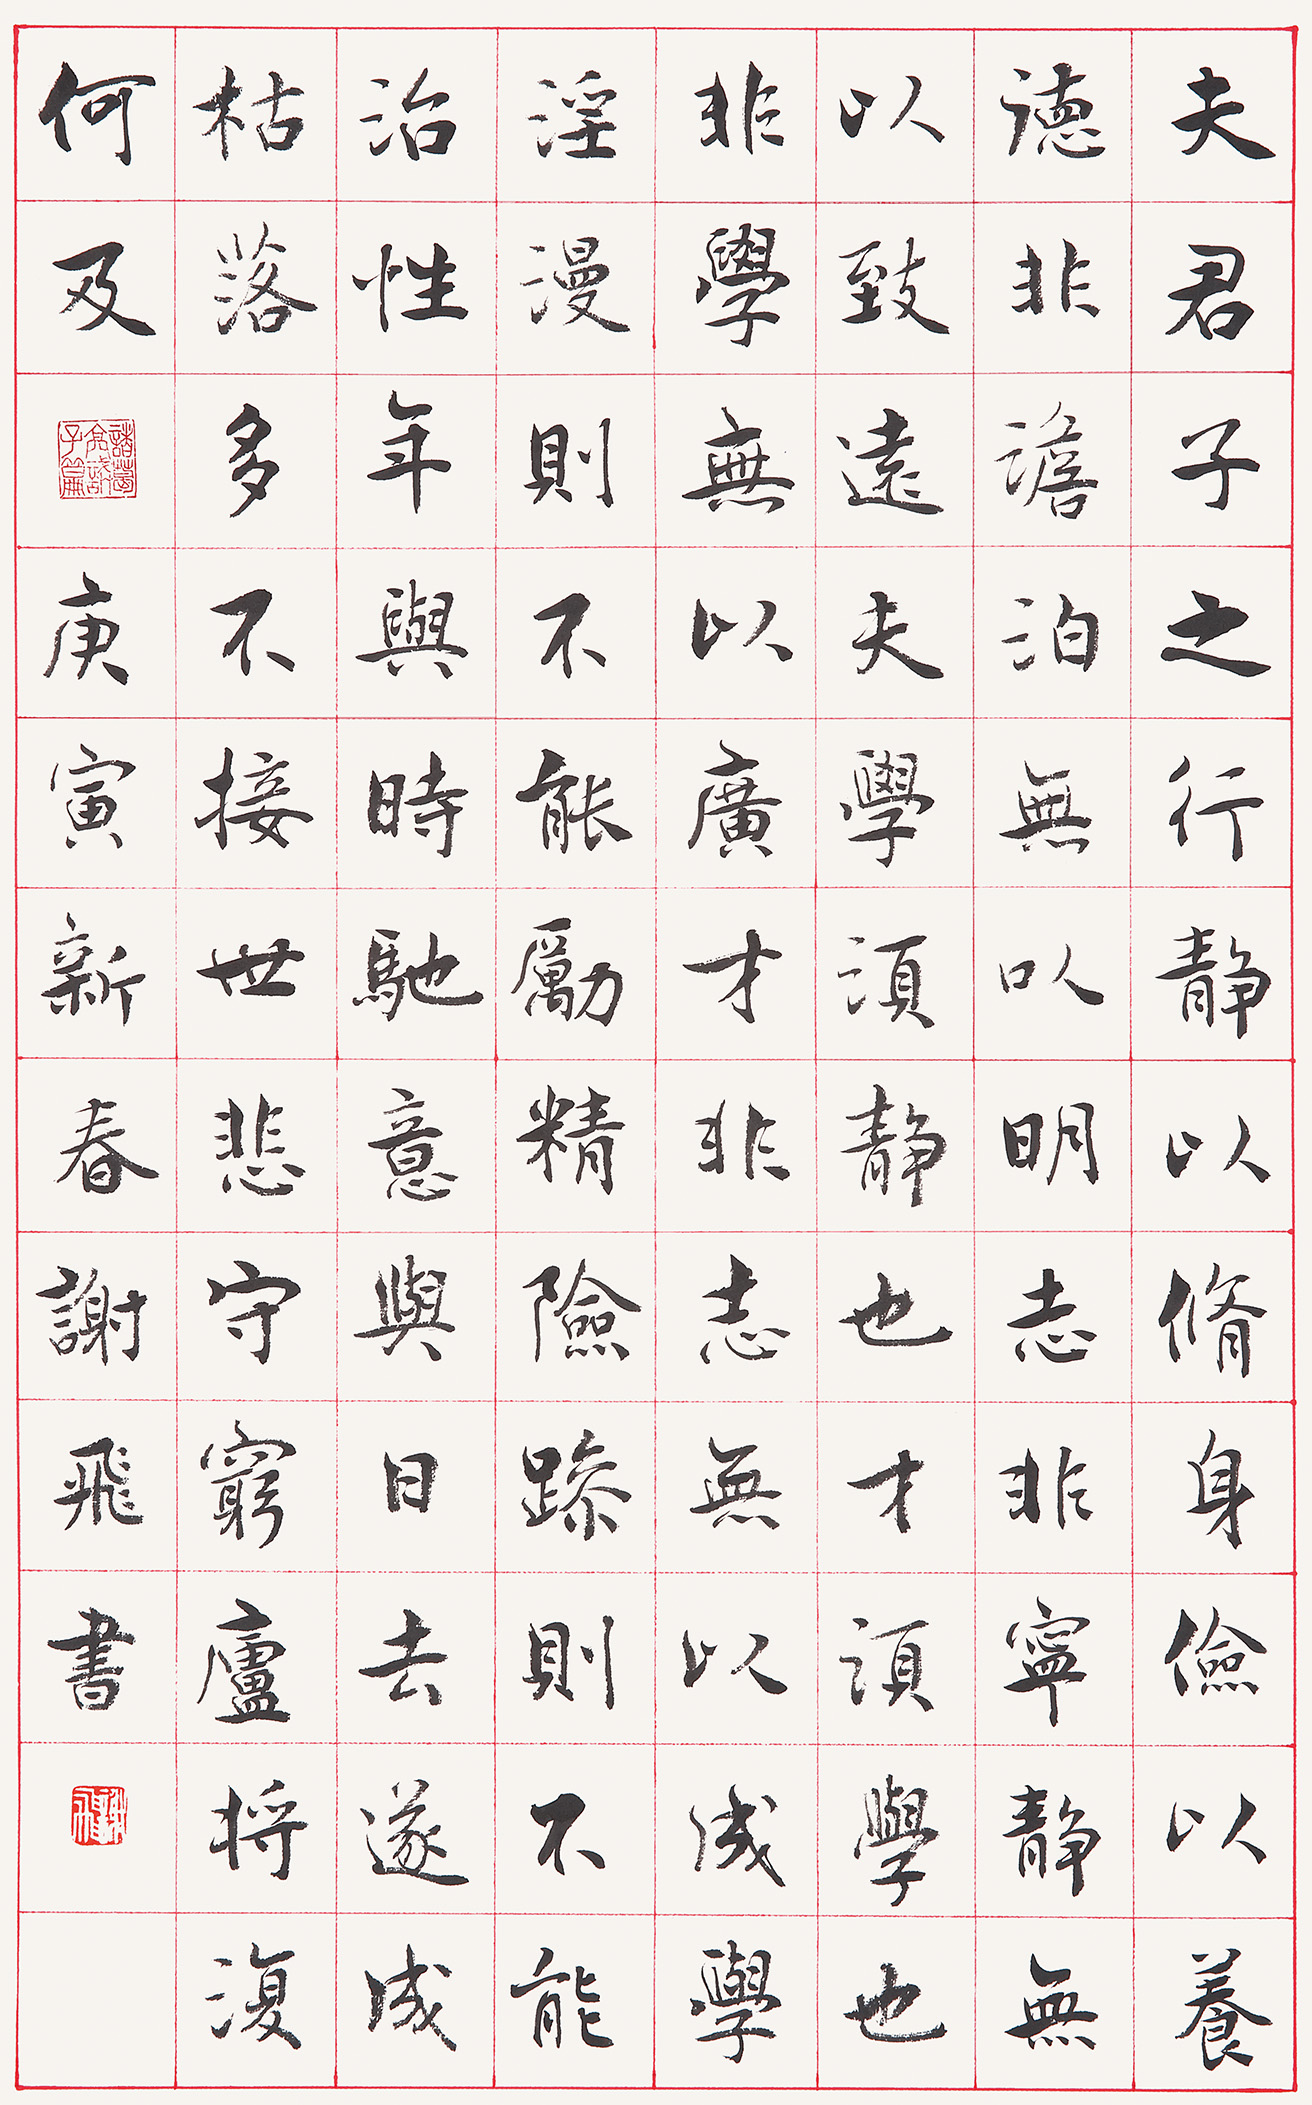 夫君子之行靜以脩身儉以養
德非澹泊無以明志非寧靜無
以致遠夫學須靜也才須學也
非學無以廣才非志無以成學
淫漫則不能勵精險躁則不能
治性年與時馳意與日去遂成
枯落多不接世悲守窮廬將復
何及
諸葛亮誡子篇
庚寅新春謝飛書
謝飛